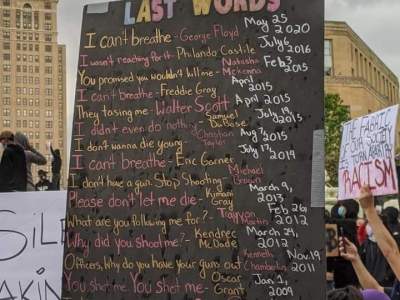 LAST WORDS
I can't breathe - George Floyd May 25 2020
I wasn't reaching for it Philando Castile July 6 2016
You promised you wouldn't kill me - Natasha Mckenna Feb 3 2015
I can't breathe - Freddie Gray April 2015
They tasing me - Walter Scott April 2015
I didn't even do nothing - Samuel DuBose July 19 2015
I don't wanna die young - Christian Taylor Aug 7 2015
I can't breathe - Eric Garner July 17, 2014
I don't have a gun. Stop Shooting - Michael Brown
Please don't let me die - Kimani Gray March 9, 2013
What are you following me for? - Trayvon Martin Feb 26 2012
Why did you shoot me? - Kendrec McDade March 24, 2012
Officers, Why do you have your guns out Kenneth Chamberlin Nov 19 2011
You shot me. You shot me - Oscar Grant Jan 1, 2009
THE FABRIC
RACISM